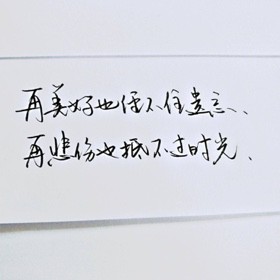 再美好也经不住遗忘、
再悲伤也抵不过时光、